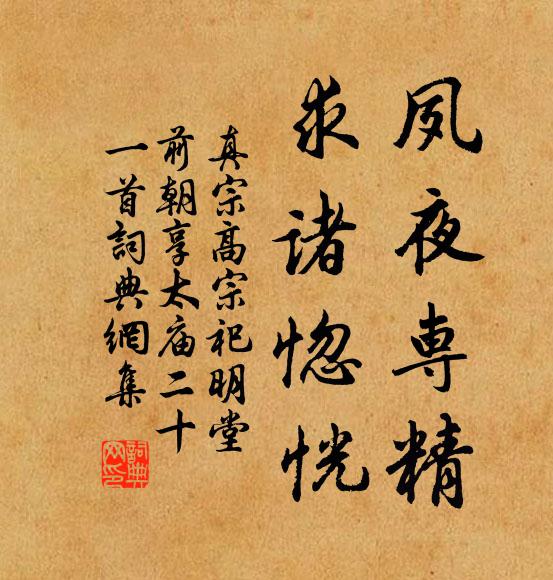 夙夜専精
求诸惚恍
真宗高宗祀明堂
前朝享太庙二十
一首詞典網集
詞典